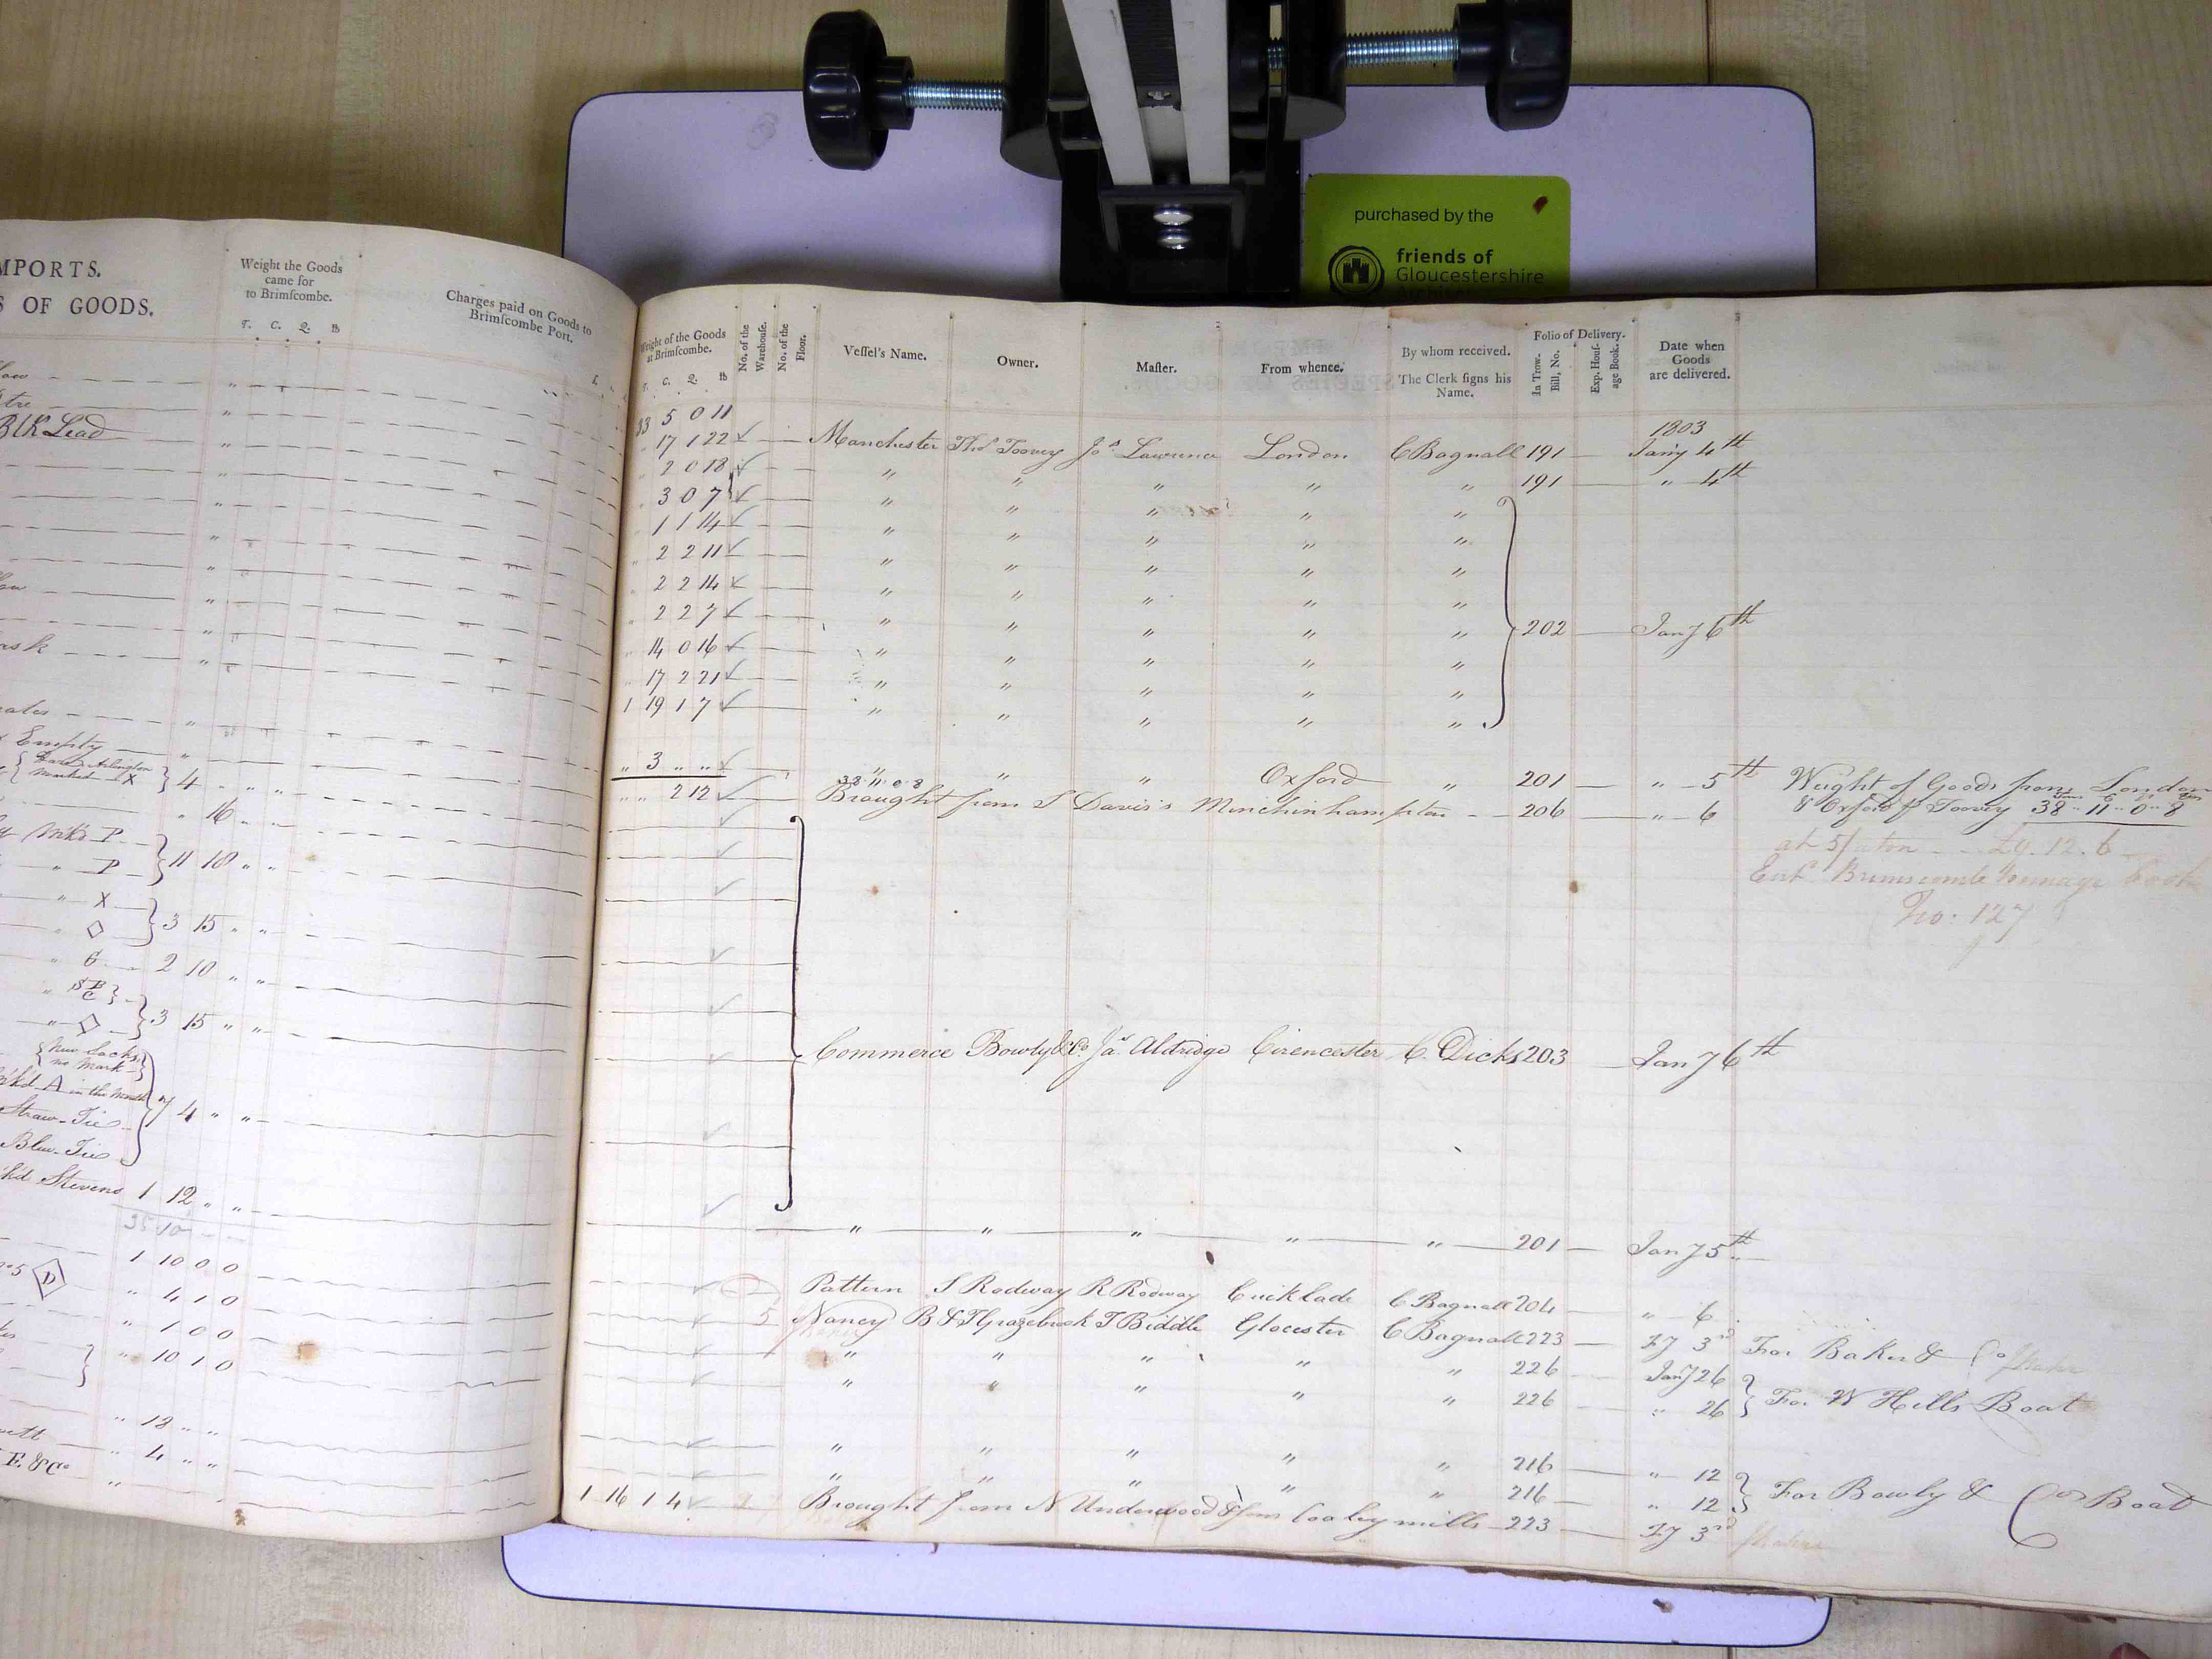 purchased by the
friends of
Gloucestershire
MPORTS.
S OF GOODS.
Weight the Goods
came for
to Brimſcombe.
T. C. Q. lb
Charges paid on Goods to
Brimſcombe Port.
Blk Lead
Empty
Marked X } 4 " " "
" 16 " "
Mk'd P
" P } 11 18 " "
" X
" ◇ } 3 15 " "
" G 2 10 " "
" ◇ } 3 15 " "
New Sacks
no Mark
A in the Mouth
Straw Tie
Blue Tie } 7 4 " "
k'd Stevens 1 12 " "
35 10
1 10 0 0
D " 4 1 0
" 1 0 0
" 10 1 0
" 18 " "
" 4 " "
F. & Co "
Weight of the Goods
at Brimſcombe.
T. C. Q. lb
No. of the
Warehouſe.
No. of the
Floor.
Veſſel's Name.
Owner.
Maſter.
From whence.
By whom received.
The Clerk ſigns his
Name.
Folio of Delivery.
In Trow-
Bill, No.
Exp. Houſ-
age Book.
Date when
Goods
are delivered.
33 5 0 11
1803
17 1 22 Manchester Thos Toovey Jos Lawrence London C Bagnall 191 Jany 4th
2 0 18 " " " " " 191 " 4th
3 0 7 " " " " "
1 1 14 " " " " "
2 2 11 " " " " "
2 2 14 " " " " "
2 2 7 " " " " " 202 Jany 6th
14 0 16 " " " " "
17 2 21 " " " " "
1 19 1 7 " " " " "
" 3 " " " " " Oxford " 201 " 5th Weight of Goods from London
38 11 0 8
" " 2 12 Brought from S Davis's Minchinhampton 206 " 6 & Oxford p Toovey 38 " 11 " 0 " 8
at 5/ ton £9.12.6
Ent. Brimscombe Tonnage Book
No: 127
Commerce Bowly & Co. Jas Aldridge Cirencester C. Dicks 203 Jany 6th
" " " " " 201 Jany 5th
Pattern S Rodway R Rodway Cricklade C Bagnall 204 " 6
5 Nancy B & T Grazebrook T Biddle Glocester C Bagnall 223 Fy 3rd For Baker & Co
" " " " " 226 Jany 26
" " " " " 226 " 26 } For W Hills Boat
" " " " " 216 " 12
" " " " " 216 " 12 } For Bowly & Cos Boat
1 16 1 4 Brought from N Underwood & Sons Coaley mills 223 Fy 3rd